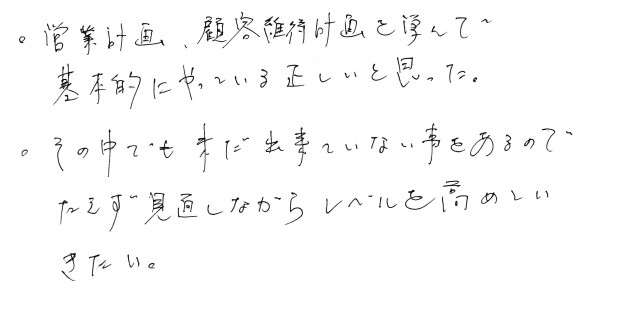 。営業計画、顧客維持計画を学んで
基本的にやっている正しいと思った。
。その中でも未だ出来ていない事をあるので
たえず見直しながらレベルを高めてい
きたい。